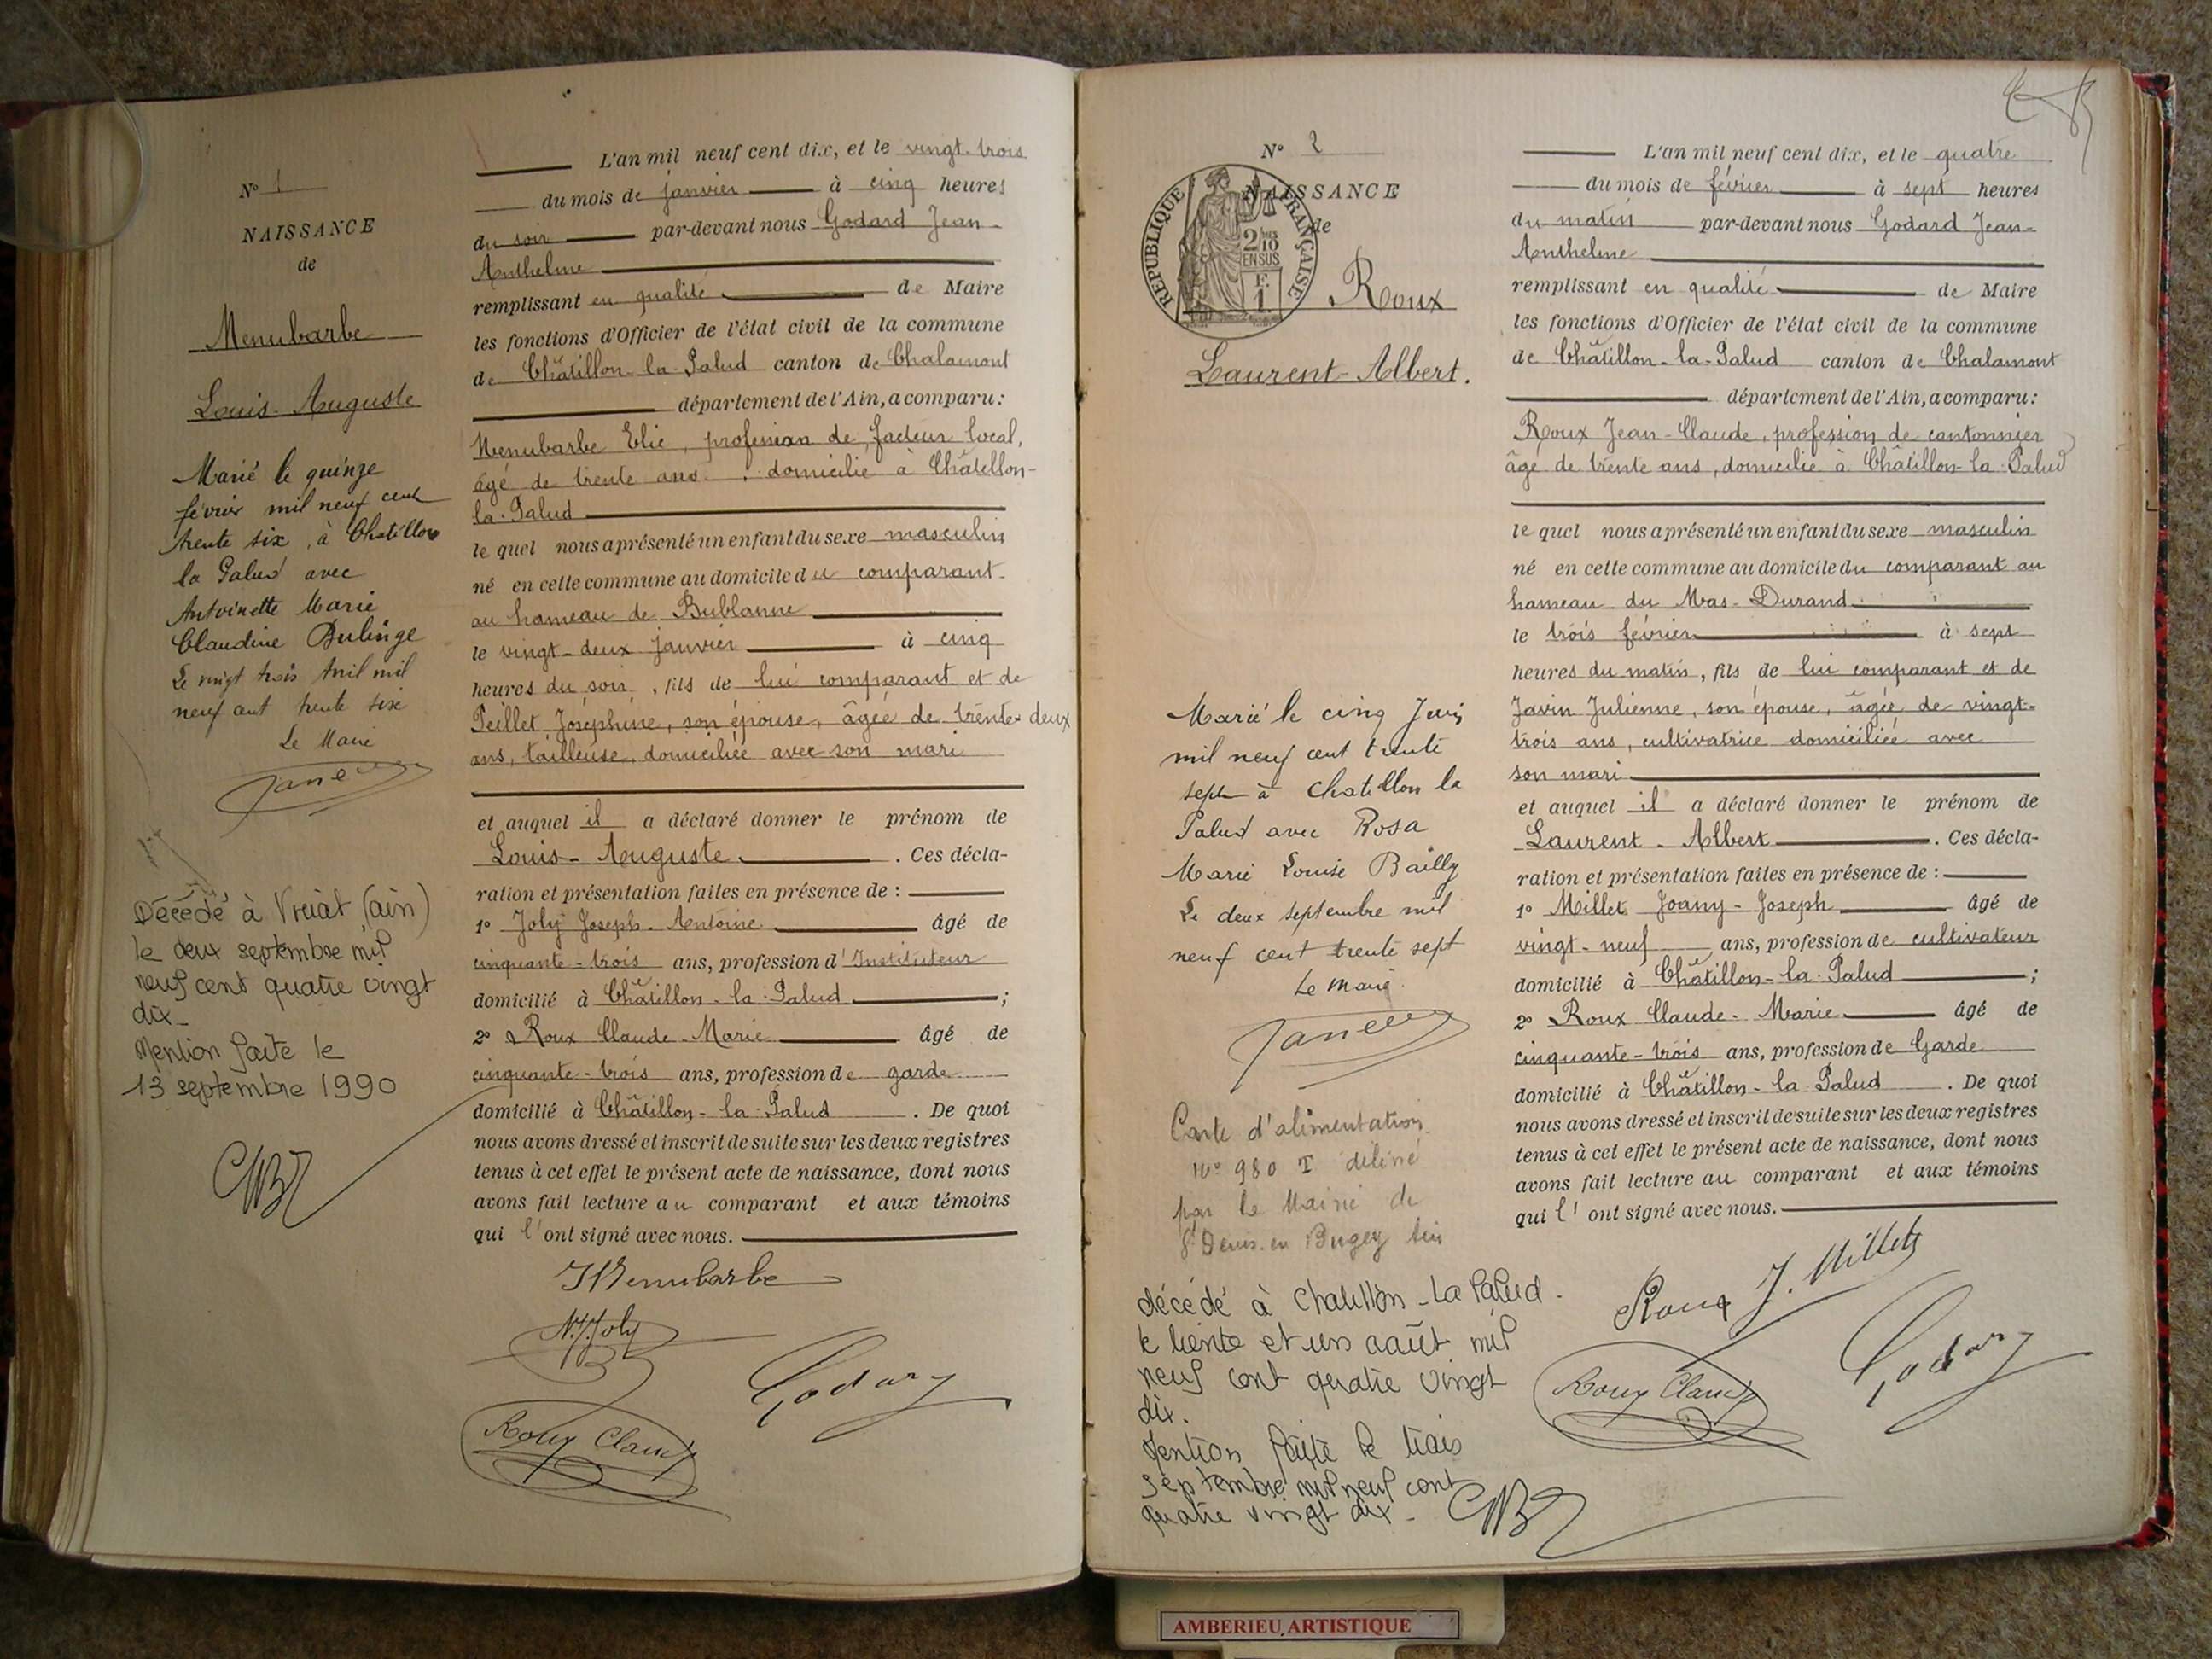 N° 1
NAISSANCE
de
Menubarbe
Louis-Auguste
Marié le quinze
février mil neuf cent
trente six, à Chatillon
la Palud avec
Antoinette Marie
Claudine Bulinge
Le vingt trois Avril mil
neuf cent trente six
Le Maire
Décédé à Vriat (ain)
le deux septembre mil
neuf cent quatre vingt
dix_
Mention faite le
13 septembre 1990
L'an mil neuf cent dix, et le vingt-trois
du mois de janvier à cinq heures
du soir par-devant nous Godard Jean-
Anthelme
remplissant en qualité de Maire
les fonctions d'Officier de l'état civil de la commune
de Châtillon-la-Palud canton de Chalamont
département de l'Ain, a comparu:
Menubarbe Elie, profession de facteur local,
âgé de trente ans, domicilié à Châtillon-
la-Palud
le quel nous a présenté un enfant du sexe masculin
né en cette commune au domicile du comparant
au hameau de Bublanne
le vingt-deux janvier à cinq
heures du soir, fils de lui comparant et de
Peillet Joséphine, son épouse, âgée de trente-deux
ans, tailleuse, domiciliée avec son mari
et auquel il a déclaré donner le prénom de
Louis-Auguste. Ces décla-
ration et présentation faites en présence de :
1° Joly Joseph-Antoine âgé de
cinquante-trois ans, profession d'Instituteur
domicilié à Châtillon-la-Palud ;
2° Roux Claude-Marie âgé de
cinquante-trois ans, profession de garde
domicilié à Châtillon-la-Palud. De quoi
nous avons dressé et inscrit de suite sur les deux registres
tenus à cet effet le présent acte de naissance, dont nous
avons fait lecture au comparant et aux témoins
qui l'ont signé avec nous.
Menubarbe
Joly
Godard
Roux Claude
N° 2
NAISSANCE
de
REPUBLIQUE FRANÇAISE
2/10
EN SUS
F.
1.
Roux
Laurent-Albert.
Marié le cinq Juin
mil neuf cent trente
sept à Chatillon la
Palud avec Rosa
Marie Louise Bailly
Le deux septembre mil
neuf cent trente sept
Le Maire.
Carte d'alimentation
N° 980 T délivré
par le Maire de
St Denis-en Bugey Ain
décédé à Chatillon-La Palud-
le trente et un août mil
neuf cent quatre vingt
dix.
Mention faite le trois
septembre mil neuf cent
quatre vingt dix-
L'an mil neuf cent dix, et le quatre
du mois de février à sept heures
du matin par-devant nous Godard Jean-
Anthelme
remplissant en qualité de Maire
les fonctions d'Officier de l'état civil de la commune
de Châtillon-la-Palud canton de Chalamont
département de l'Ain, a comparu:
Roux Jean-Claude, profession de cantonnier
âgé de trente ans, domicilié à Châtillon-la-Palud
le quel nous a présenté un enfant du sexe masculin
né en cette commune au domicile du comparant au
hameau du Mas-Durand
le trois février à sept
heures du matin, fils de lui comparant et de
Javin Julienne, son épouse, âgée de vingt-
trois ans, cultivatrice domiciliée avec
son mari
et auquel il a déclaré donner le prénom de
Laurent-Albert. Ces décla-
ration et présentation faites en présence de :
1° Millet Joany-Joseph âgé de
vingt-neuf ans, profession de cultivateur
domicilié à Châtillon-la-Palud ;
2° Roux Claude-Marie âgé de
cinquante-trois ans, profession de Garde
domicilié à Châtillon-la-Palud. De quoi
nous avons dressé et inscrit de suite sur les deux registres
tenus à cet effet le présent acte de naissance, dont nous
avons fait lecture au comparant et aux témoins
qui l'ont signé avec nous.
Roux J. Millet
Roux Claude
Godard
AMBERIEU ARTISTIQUE